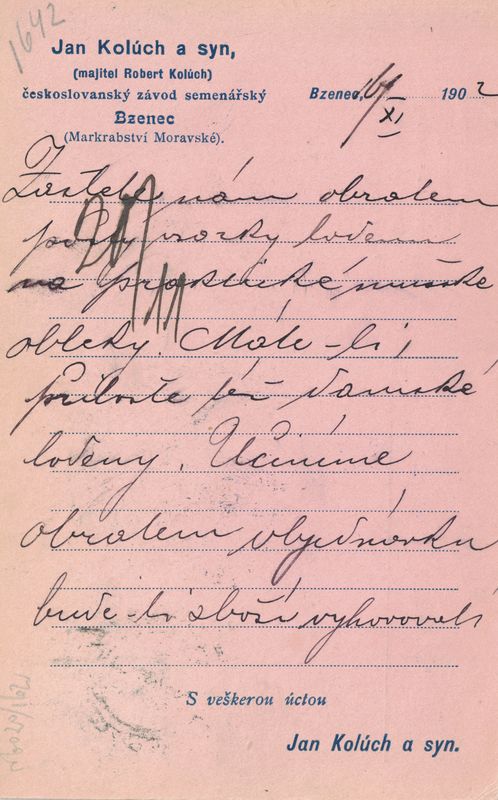 1642
Jan Kolúch a syn,
(majitel Robert Kolúch)
českoslovanský závod semenářský
Bzenec
(Markrabství Moravské).
Bzenec, 16/XI 1902
Zašlete nám obratem
pošty vzorky lodenů
na praktické mužské
obleky. Máte-li,
přiložte též dámské
lodeny. Učiníme
obratem objednávku
bude-li zboží vyhovovati
20/11
S veškerou úctou
Jan Kolúch a syn.